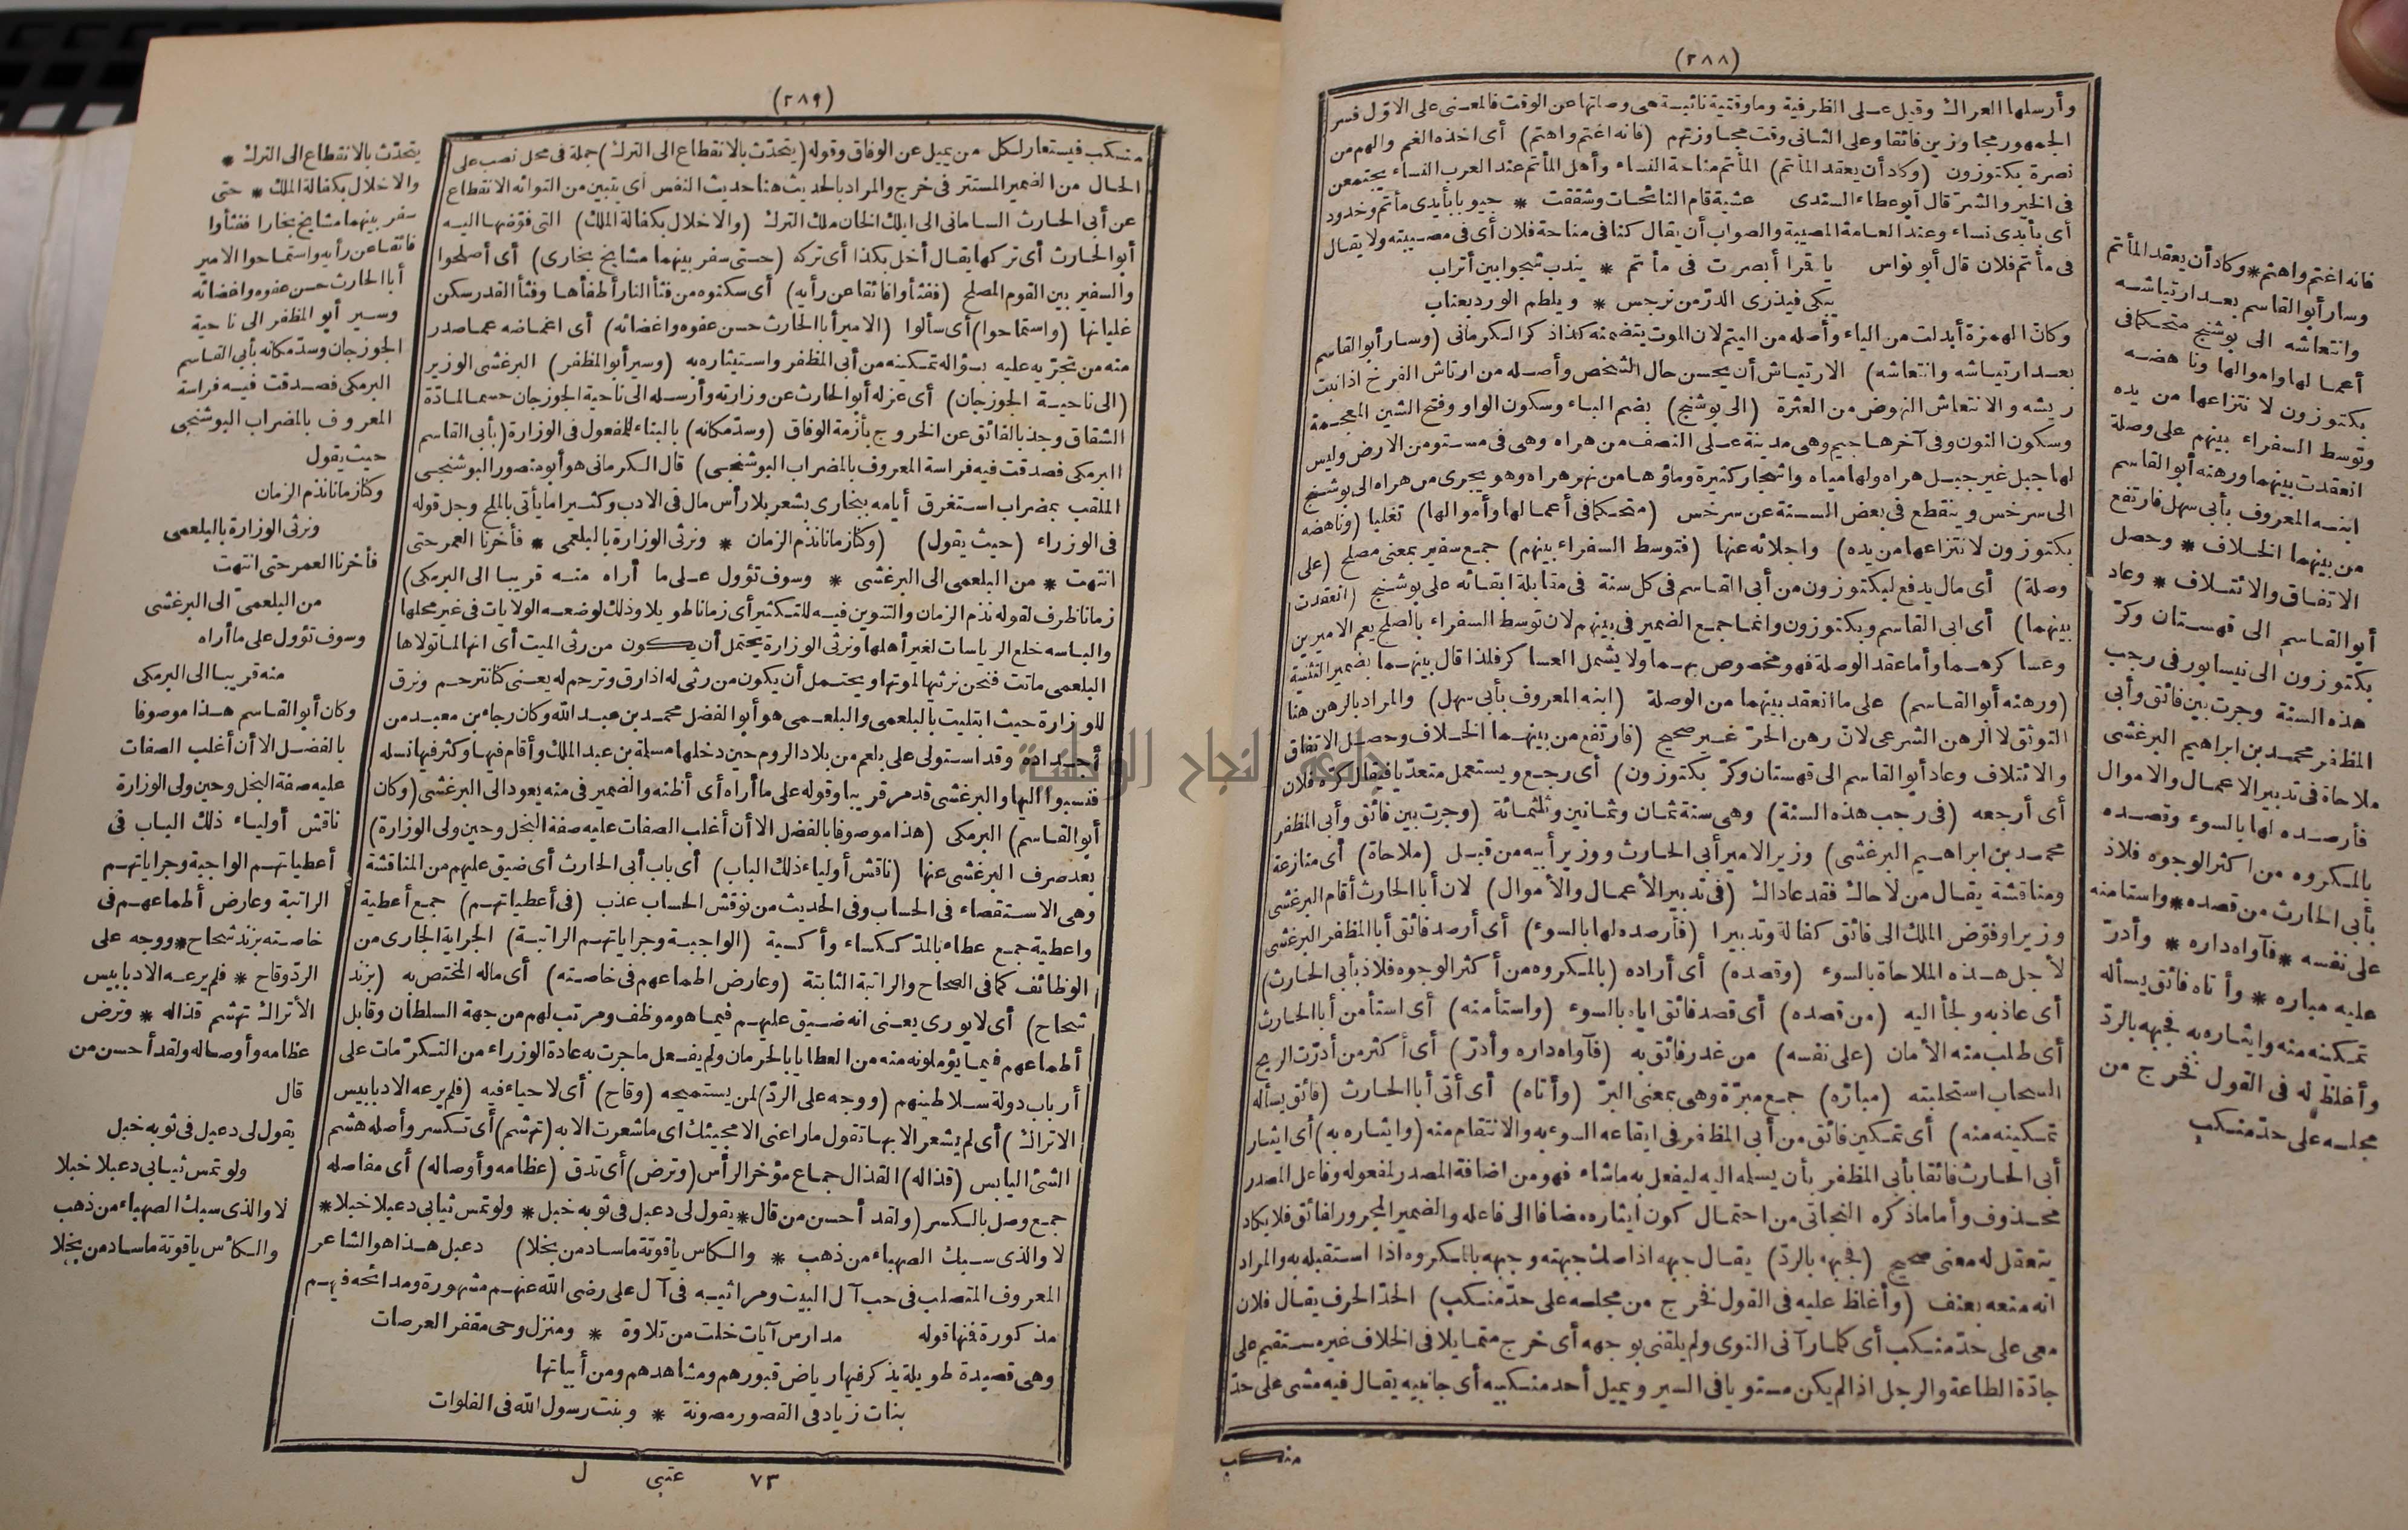 (٢٨٨)
وأرسلها العراك وقيل على الظرفية وما وقتية نائبة هى وصلتها عن الوقت فالمعنى على الاوّل فسر
الجمهور مجاوزين فائقا وعلى الثانى وقت مجاوزتهم (فانه اغتم واهتم) أى اخذه الغم والهم من
نصرة بكتوزون (وكاد أن يعقد المأتم) المأتم مناحة النساء وأهل المأتم عند العرب النساء يجتمعن
فى الخير والشرّ قال أبو عطاء السندى عشية قام النائحات وشققت * جيوب بأيدى مأتم وخدود
أى بأيدى نساء وعند العامة المصيبة والصواب أن يقال كنا فى مناحة فلان أى فى مصيبته ولا يقال
فى مأتم فلان قال أبو نواس يا قرا أبصرت فى مأتم * يندب شجوا بين أتراب
يبكى فيذرى الدرّ من نرجس * ويلطم الورد بعناب
وكان الهمزة أبدلت من الياء وأصله من اليتم لان الموت يتضمنه كذا ذكر الكرمانى (وسار أبو القاسم
بعد ارتياشه وانتعاشه) الارتياش أن يحسن حال الشخص وأصله من ارتاش الفرخ اذا نبت
ريشه والانتعاش النهوض من العثرة (الى بوشنج) بضم الباء وسكون الواو وفتح الشين المعجمة
وسكون النون وفى آخرها جيم وهى مدينة على النصف من هراه وهى فى مستو من الارض وليس
لها جبل غير جبل هراه ولها مياه واشجار كثيرة وماؤها من نهر هراه وهو يجرى من هراه الى بوشنج
الى سرخس وينقطع فى بعض السنة عن سرخس (متحكما فى أعمالها وأموالها) تغلبا (وناهضه
بكتوزون لانتزاعها من يده) واجلائه عنها (فتوسط السفراء بينهم) جمع سفير بمعنى مصلح (على
وصلة) أى مال يدفع لبكتوزون من أبى القاسم فى كل سنة فى مقابلة ابقائه على بوشنج (انعقدت
بينهما) أى ابى القاسم وبكتوزون وانما جمع الضمير فى بينهم لان توسط السفراء بالصلح يعم الاميرين
وعساكرهما وأما عقد الوصلة فهو مخصوص بهما ولا يشمل العساكر فلذا قال بينهما بضمير التثنية
(ورهنه أبو القاسم) على ما انعقد بينهما من الوصلة (ابنه المعروف بأبى سهل) والمراد بالرهن هنا
التوثق لا الرهن الشرعى لان رهن الحرّ غير صحيح (فارتفع من بينهما الخلاف وحصل الاتفاق
والائتلاف وعاد أبو القاسم الى قهستان وكرّ بكتوزون) أى رجع ويستعمل متعدّيا فيقال كرّه فلان
أى أرجعه (فى رجب هذه السنة) وهى سنة ثمان وثمانين وثلثمائة (وجرت بين فائق وأبى المظفر
محمد بن ابراهيم البرغشى) وزير الامير أبى الحارث ووزير أبيه من قبل (ملاحاة) أى منازعة
ومناقشة يقال من لاحاك فقد عاداك (فى تدبير الأعمال والأموال) لان أبا الحارث أقام البرغشى
وزيرا وفوّض الملك الى فائق كفالة وتدبيرا (فأرصده لها بالسوء) أى أرصد فائق أبا المظفر البرغشى
لأجل هذه الملاحاة بالسوء (وقصده) أى أراده (بالمكروه من أكثر الوجوه فلاذ بأبى الحارث)
أى عاذ به ولجأ اليه (من قصده) أى قصد فائق اياه بالسوء (واستأمنه) أى استأمن أبا الحارث
أى طلب منه الأمان (على نفسه) من غدر فائق به (فآواه داره وأدرّ) أى أكثر من أدرّت الريح
السحاب استحلبته (مبارّه) جمع مبرّة وهى بمعنى البرّ (وأتاه) أى أتى أبا الحارث (فائق يسأله
تمكينه منه) أى تمكين فائق من أبى المظفر فى ايقاعه السوء به والانتقام منه (وايثاره به) أى ايثار
أبى الحارث فائقا بأبى المظفر بأن يسلمه اليه ليفعل به ماشاء فهو من اضافة المصدر لمفعوله وفاعل المصدر
محذوف وأما ماذكره النجاتى من احتمال كون ايثاره مضافا الى فاعله والضمير المجرور لفائق فلا يكاد
يتعقل له معنى صحيح (فجبهه بالردّ) يقال جبهه اذا صك جبهته وجبهه بالمكروه اذا استقبله به والمراد
انه منعه بعنف (وأغلظ عليه فى القول نخرج من مجلسه على حدّ منكب) الحدّ الحرف يقال فلان
معى على حدّ منكب أى كلما رآنى التوى ولم يلقنى بوجهه أى خرج متمايلا فى الخلاف غير مستقيم على
جادّة الطاعة والرجل اذا لم يكن مستويا فى السير ويميل أحد منكبيه أى جانبيه يقال فيه مشى على حدّ
منكب
فانه اغتم واهتم * وكاد أن يعقد المأتم
وسار أبو القاسم بعد ارتياشه
وانتعاشه الى بوشنج متحكما فى
أعمالها واموالها وناهضه
بكتوزون لانتزاعها من يده
وتوسط السفراء بينهم على وصلة
انعقدت بينهما ورهنه أبو القاسم
ابنه المعروف بأبى سهل فارتفع
من بينهما الخلاف * وحصل
الاتفاق والائتلاف * وعاد
أبو القاسم الى قهستان وكرّ
بكتوزون الى نيسابور فى رجب
هذه السنة وجرت بين فائق وأبى
المظفر محمد بن ابراهيم البرغشى
ملاحاة فى تدبير الاعمال والاموال
فأرصده لها بالسوء وقصده
بالمكروه من اكثر الوجوه فلاذ
بأبى الحارث من قصده * واستامنه
على نفسه * فآواه داره * وأدرّ
عليه مباره * وأتاه فائق يسأله
تمكينه منه وايثاره به فجبهه بالردّ
وأغلظ له فى القول نخرج من
مجلسه على حدّ منكب
(٢٨٩)
منكب فيستعار لكل من يميل عن الوفاق وقوله (يتحدّث بالانقطاع الى الترك) جملة فى محل نصب على
الحال من الضمير المستتر فى خرج والمراد بالحديث هنا حديث النفس أى يتبين من التوائه الانقطاع
عن أبى الحارث السامانى الى ايلك الخان ملك الترك (والاخلال بكفالة الملك) التى فوّضها اليه
أبو الحارث أى تركها يقال أخل بكذا أى تركه (حتى سفر بينهما مشايخ بخارى) أى أصلحوا
والسفير بين القوم المصلح (ففثأوا فائقا عن رأيه) أى سكنوه من فثأ النار أطفأها وفثأ القدر سكن
غليانها (واستماحوا) أى سألوا (الامير أبا الحارث حسن عفوه واغضائه) أى اغماضه عما صدر
منه من تجرّيه عليه بسؤاله تمكينه من أبى المظفر واستيثاره به (وسير أبو المظفر) البرغشى الوزير
(الى ناحية الجوزجان) أى عزله أبو الحارث عن وزارته وأرسله الى ناحية الجوزجان حسما لمادّة
الشقاق وجذبا لفائق عن الخروج بأزمة الوفاق (وسدّ مكانه) بالبناء للمفعول فى الوزارة (بأبى القاسم
البرمكى فصدقت فيه فراسة المعروف بالمضراب البوشنجى) قال الكرمانى هو أبو منصور البوشنجى
الملقب بمضراب استغرق أيامه ببخارى بشعر بلا رأس مال فى الادب وكثيرا ما يأتى بالملح وجل قوله
فى الوزراء (حيث يقول) (وكنا زمانا نذم الزمان * ونرثى الوزارة بالبلعمى * فأخرنا العمر حتى
انتهت * من البلعمى الى البرغشى * وسوف تؤول على ما أراه منه قريبا الى البرمكى)
زمانا ظرف لقوله نذم الزمان والتنوين فيه للتكثير أى زمانا طويلا وذلك لوضعه الولايات فى غير محلها
والباسه خلع الرياسات لغير أهلها ونرثى الوزارة يحتمل أن يكون من رثى الميت أى انها لما تولاها
البلعمى ماتت فنحن نرثيها لموتها ويحتمل أن يكون من رثى له اذا رق وترحم له يعنى كنا نترحم ونرق
للوزارة حيث ابتليت بالبلعمى والبلعمى هو أبو الفضل محمد بن عبد الله وكان رجاء بن معبد من
أجداده وقد استولى على بلعم من بلاد الروم حين دخلها مسلمة بن عبد الملك وأقام فيها وكثر فيها نسله
فنسبوا اليها والبرغشى قد مر قريبا وقوله على ما أراه أى أظنه والضمير فى منه يعود الى البرغشى (وكان
أبو القاسم) البرمكى (هذا موصوفا بالفضل الا أن أغلب الصفات عليه صفة البخل وحين ولى الوزارة)
بعد صرف البرغشى عنها (ناقش أولياء ذلك الباب) أى باب أبى الحارث أى ضيق عليهم من المناقشة
وهى الاستقصاء فى الحساب وفى الحديث من نوقش الحساب عذب (فى أعطياتهم) جمع أعطية
واعطية جمع عطاء بالمدّ ككساء وأكسية (الواجبة وجراياتهم الراتبة) الجراية الجارى من
الوظائف كما فى الصحاح والراتبة الثابتة (وعارض اطماعهم فى خاصته) أى ماله المختص به (بزند
شحاح) أى لا يورى يعنى انه ضيق عليهم فيما هو موظف ومرتب لهم من جهة السلطان وقابل
أطماعهم فيما يؤملونه منه من العطايا بالحرمان ولم يفعل ما جرت به عادة الوزراء من التكرّمات على
أرباب دولة سلاطينهم (ووجه على الردّ) لمن يستميحه (وقاح) أى لا حياء فيه (فلم يرعه الا دبابيس
الاتراك) أى لم يشعر الا بها تقول ما راعنى الا مجيئك اى ما شعرت الا به (تهشم) أى تكسر وأصله هشم
الشئ اليابس (قذاله) القذال جماع مؤخر الرأس (وترض) أى تدق (عظامه وأوصاله) أى مفاصله
جمع وصل بالكسر (ولقد أحسن من قال * يقول لى دعبل فى ثوبه خبل * ولو تمس ثيابى دعبلا خبلا *
لا والذى سبك الصهباء من ذهب * والكاس ياقوتة ماساد من بخلا) دعبل هذا هو الشاعر
المعروف المتصلب فى حب آل البيت ومراثيه فى آل على رضى الله عنهم مشهورة ومدائحه فيهم
مذكورة فنها قوله مدارس آيات خلت من تلاوة * ومنزل وحى مقفر العرصات
وهى قصيدة طويلة يذكر فيها رياض قبورهم ومشاهدهم ومن أبياتها
بنات زياد فى القصور مصونة * وبنت رسول الله فى الفلوات
٧٣ عتبى ل
يتحدّث بالانقطاع الى الترك *
والاخلال بكفالة الملك * حتى
سفر بينهما مشايخ بخارا ففثأوا
فائقا عن رأيه واستماحوا الامير
أبا الحارث حسن عفوه واغضائه
وسير أبو المظفر الى ناحية
الجوزجان وسدّ مكانه بأبى القاسم
البرمكى فصدقت فيه فراسة
المعروف بالمضراب البوشنجى
حيث يقول
وكنا زمانا نذم الزمان
ونرثى الوزارة بالبلعمى
فأخرنا العمر حتى انتهت
من البلعمىّ الى البرغشى
وسوف تؤول على ما أراه
منه قريبا الى البرمكى
وكان أبو القاسم هذا موصوفا
بالفضل الا أن أغلب الصفات
عليه صفة البخل وحين ولى الوزارة
ناقش أولياء ذلك الباب فى
أعطياتهم الواجبة وجراياتهم
الراتبة وعارض أطماعهم فى
خاصته بزند شحاح * ووجه على
الردّ وقاح * فلم يرعه الا دبابيس
الأتراك تهشم قذاله * وترض
عظامه وأوصاله ولقد أحسن من
قال
يقول لى دعبل فى ثوبه خبل
ولو تمس ثيابى دعبلا خبلا
لا والذى سبك الصهباء من ذهب
والكأس ياقوتة ماساد من بخلا
جامعة النجاح الوطنية